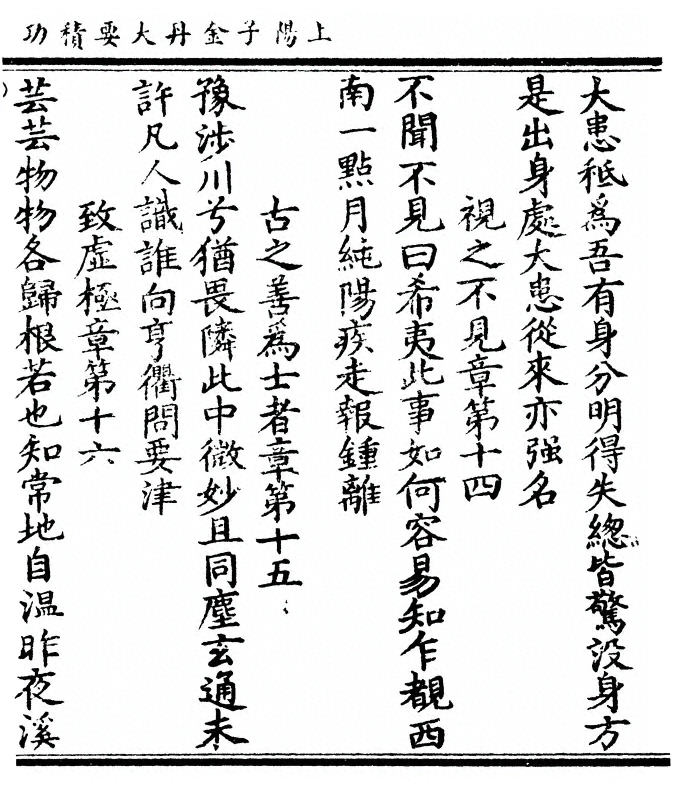 上陽子金丹大要積功
大患秪爲吾有身分明得失緫皆驚設身方
是出身處大患從來亦强名
視之不見章第十四
不聞不見曰希夷此事如何容易知乍覩西
南一點月純陽疾走報鍾離
古之善爲士者章第十五
豫涉川兮猶畏隣此中微妙且同塵玄通未
許凡人識誰向亨衢問要津
致虛極章第十六
芸芸物物各歸根若也知常地自温昨夜溪